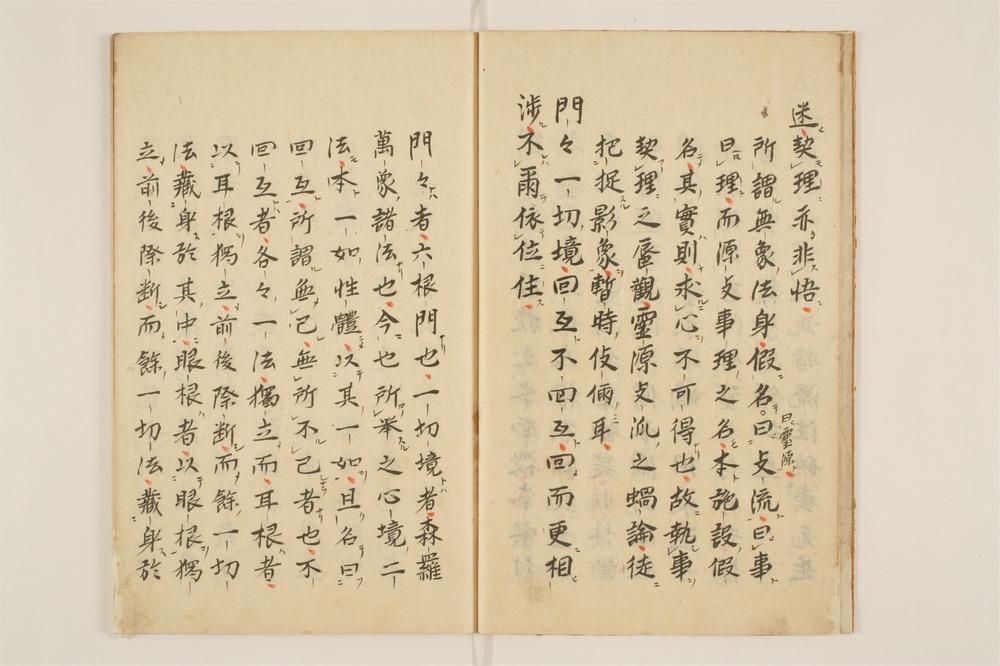 迷契理亦非悟
所謂無象法身假名曰攴流曰事
曰靈源
曰理而源攴事理之名本施設假
名其實則求心不可得也故執事
契理之虛觀靈源攴流之蝸論徒
把捉影象暫時伎倆耳
門々一切境回互不回互回而更相
涉不爾依位住
門々者六根門也一切境者森羅
萬象諸法也今也所舉之心境二
法本一如性體以其一如且名曰
回互所謂無己無所不己者也不
回互者各々一法獨立而耳根者
以耳根獨立前後際斷而餘一切
法藏身於其中眼根者以眼根獨
立前後際斷而餘一切法藏身於